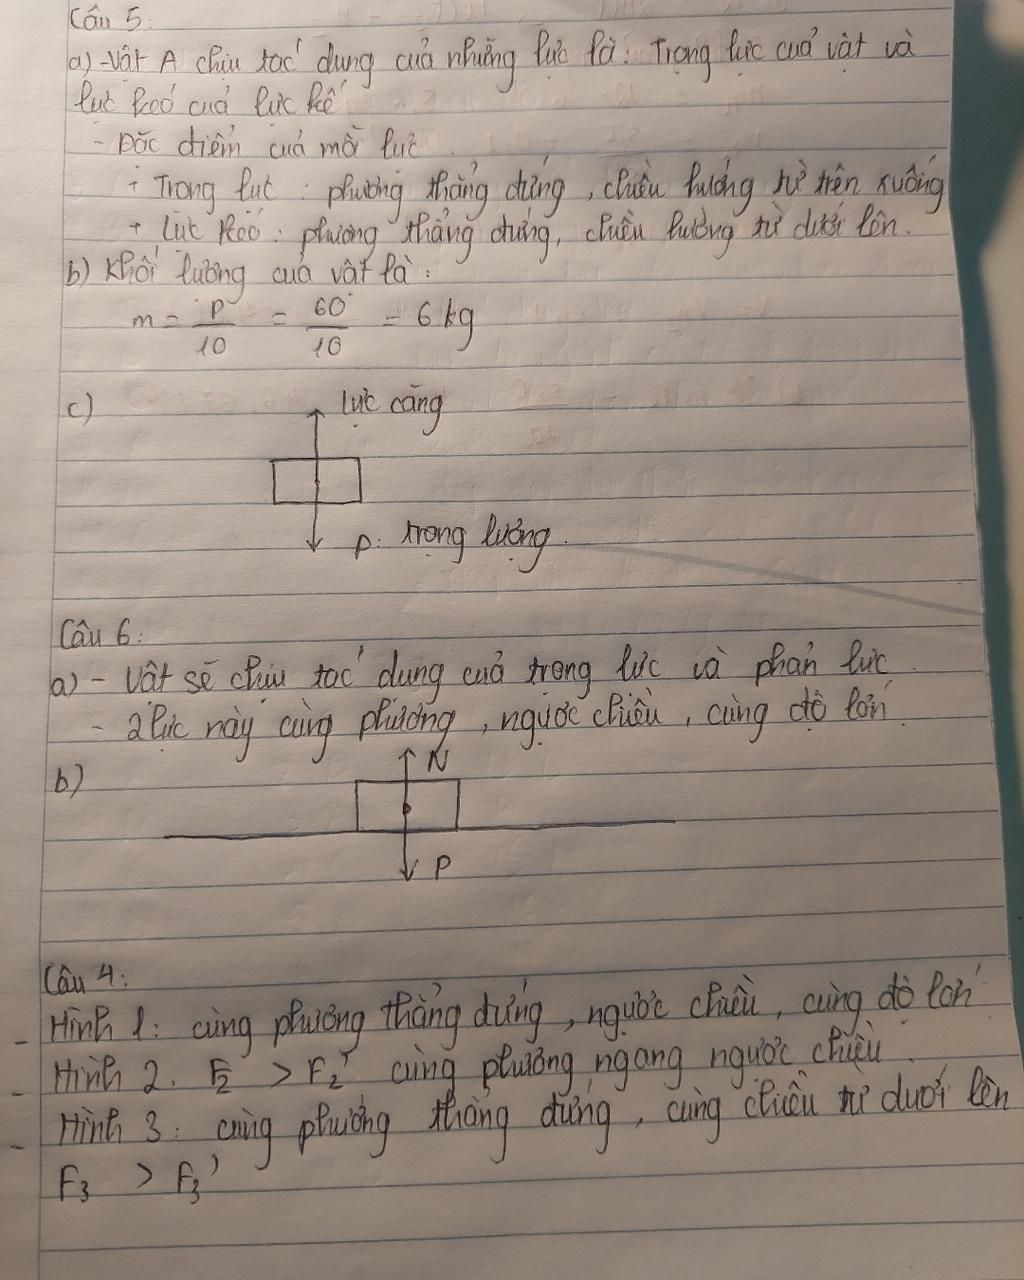 Câu 5:
a) - Vật A chịu tác dụng của những lực là: Trọng lực của vật và
lực kéo của lực kế
- Đặc điểm của mỗi lực
+ Trọng lực: phương thẳng đứng, chiều hướng từ trên xuống
+ Lực kéo: phương thẳng đứng, chiều hướng từ dưới lên.
b) Khối lượng của vật là:
m = P/10 = 60/10 = 6 kg
c)
lực căng
P: trọng lượng.
Câu 6:
a) - Vật sẽ chịu tác dụng của trọng lực và phản lực
- 2 lực này cùng phương, ngược chiều, cùng độ lớn.
b)
N
P
Câu 4:
- Hình 1: cùng phương thẳng đứng, ngược chiều, cùng độ lớn
- Hình 2. F2 > F2' cùng phương ngang ngược chiều.
- Hình 3: cùng phương thẳng đứng, cùng chiều từ dưới lên
F3 > F3'